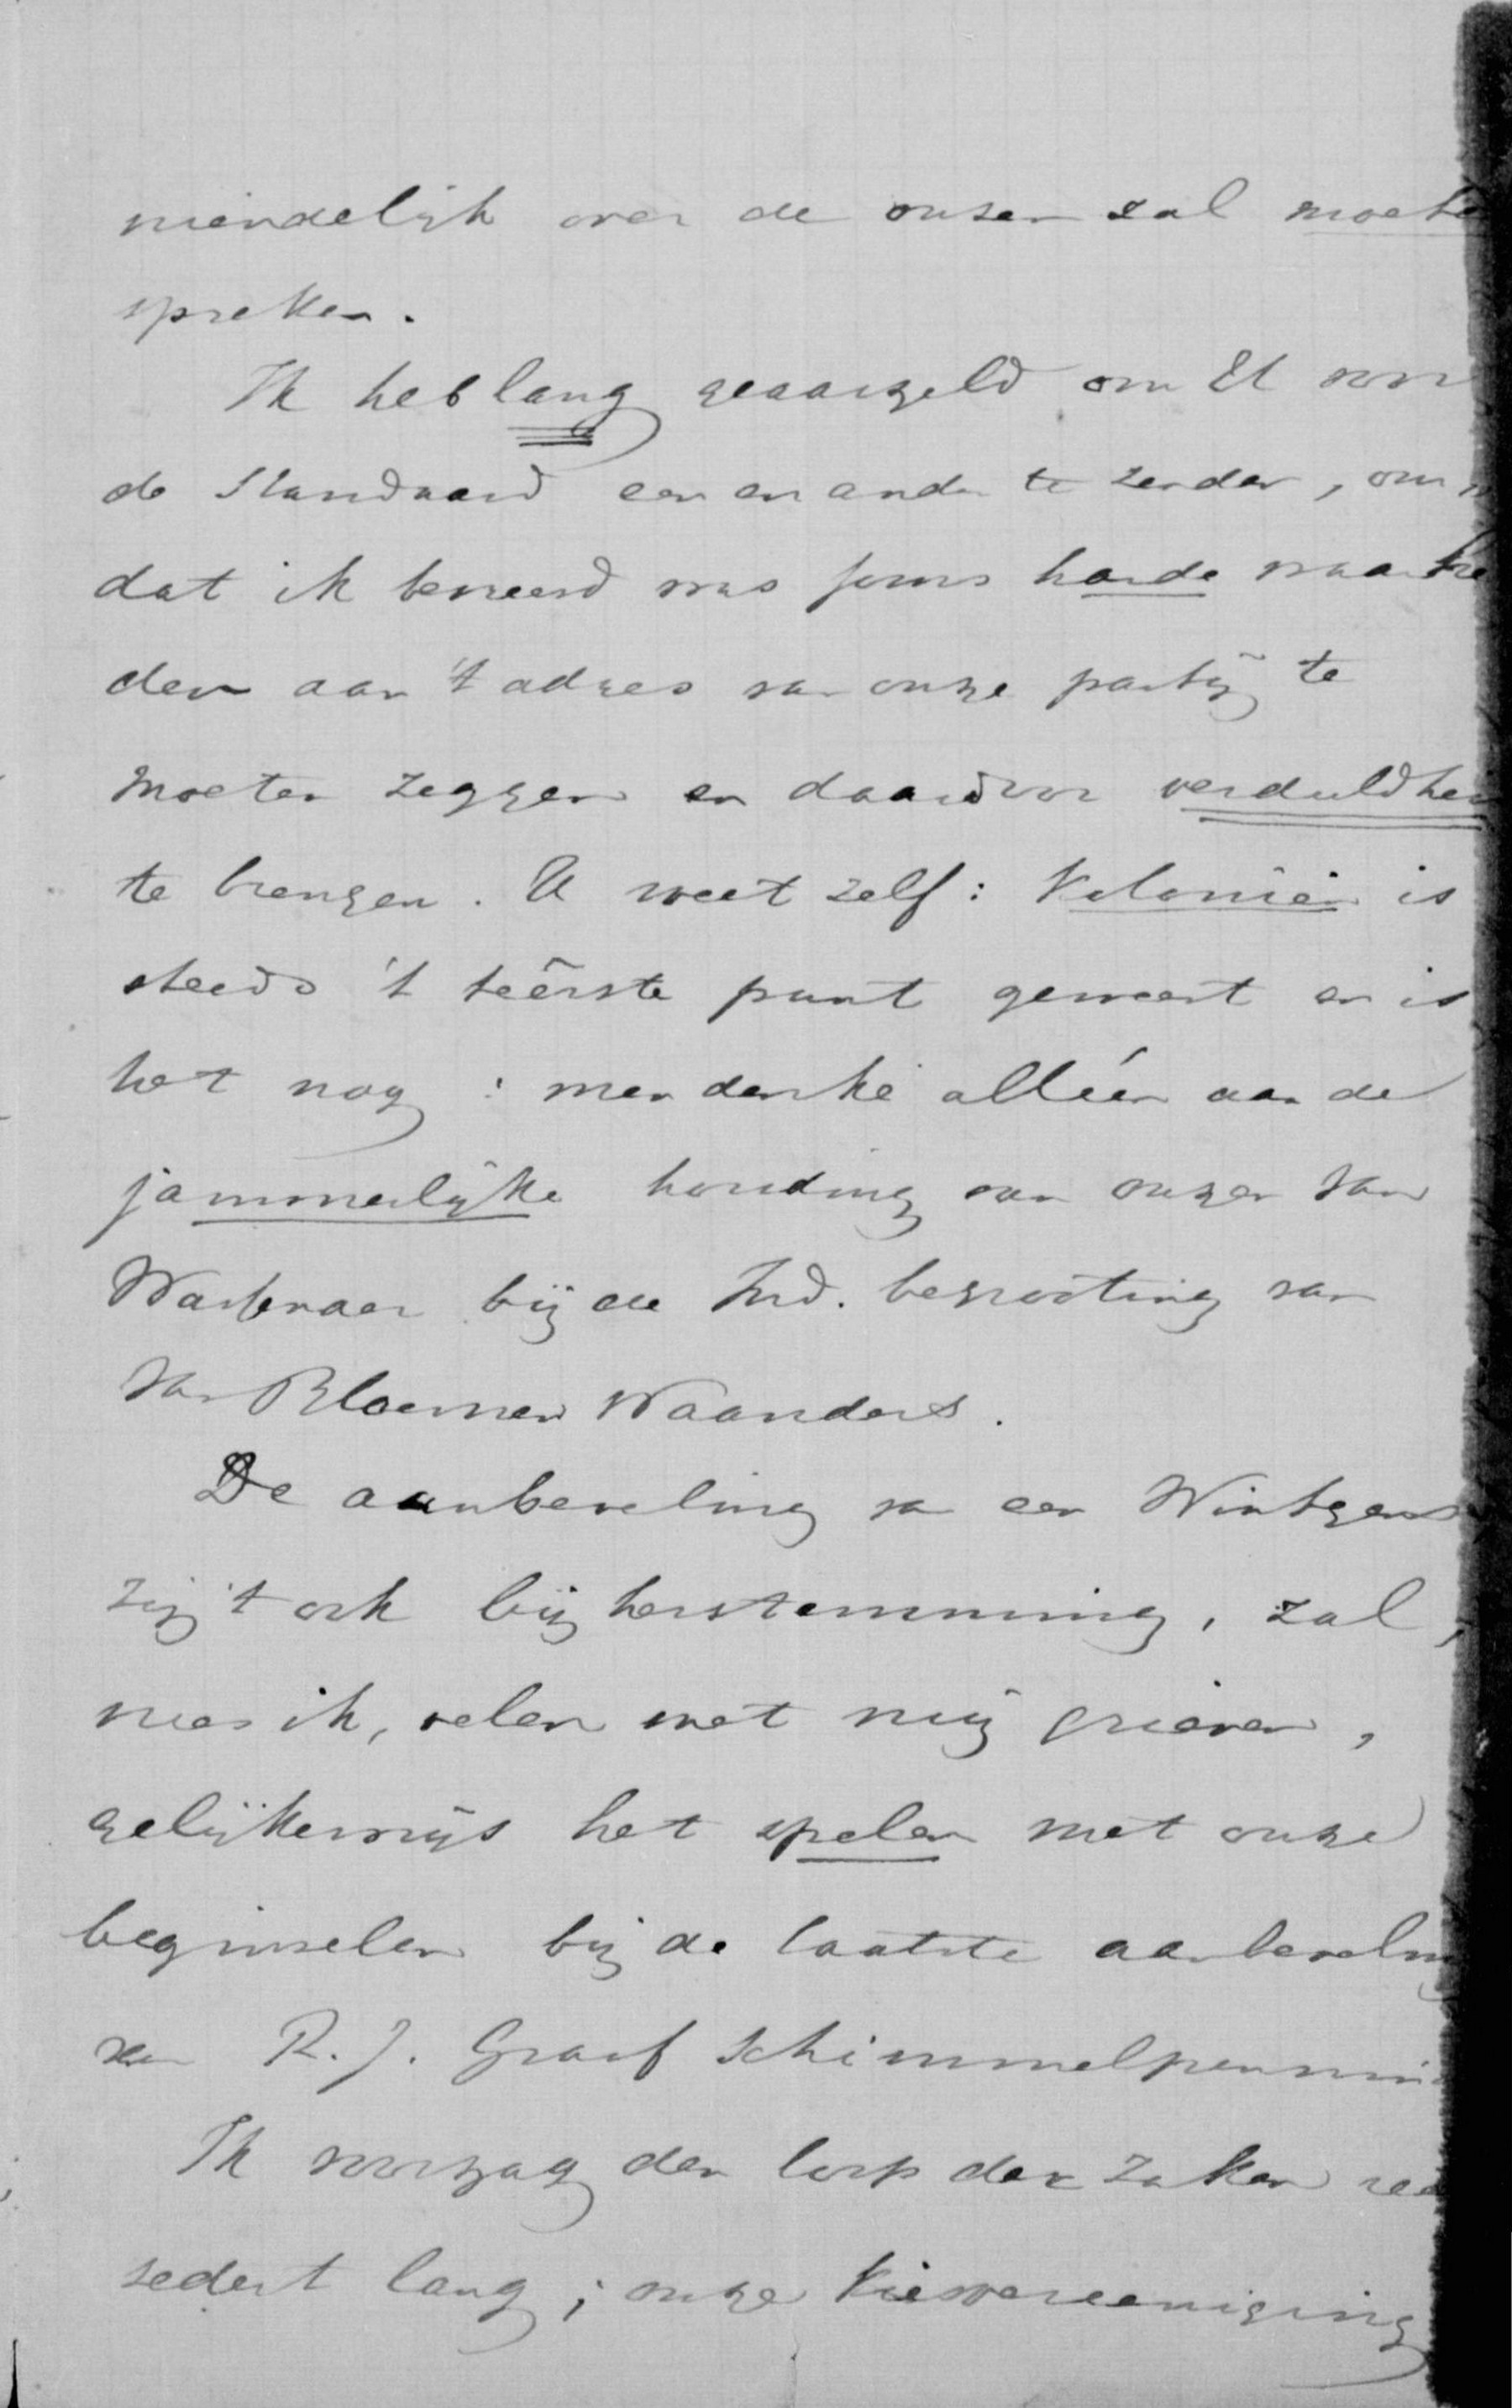 vriendelijk over de onzen zal moeten
spreken.
Ik heb lang geaarzeld om U voor
de Standaard een en ander te zenden, om
dat ik bevreesd was soms harde waarhe
den aan 't adres van onze partij te
moeten zeggen en daardoor verdeeldheid
te brengen. U weet zelf: Koloniën is
steeds 't teêrste punt geweest en is
het nog; men denke alléén aan de
jammerlijke houding van onzen van
Wassenaer bij de Ind. begrooting van
Van Bloemen Waanders.
De aanbeveling van een Wintgens
zij 't ook bij herstemming, zal,
vrees ik, velen met mij grieven,
gelijkerwijs het spelen met onze
beginselen bij de laatste aanbeveling
van R. J. Graaf Schimmelpenninck
Ik voorzag den loop der zaken reeds
sedert lang; onze Kiesvereeniging